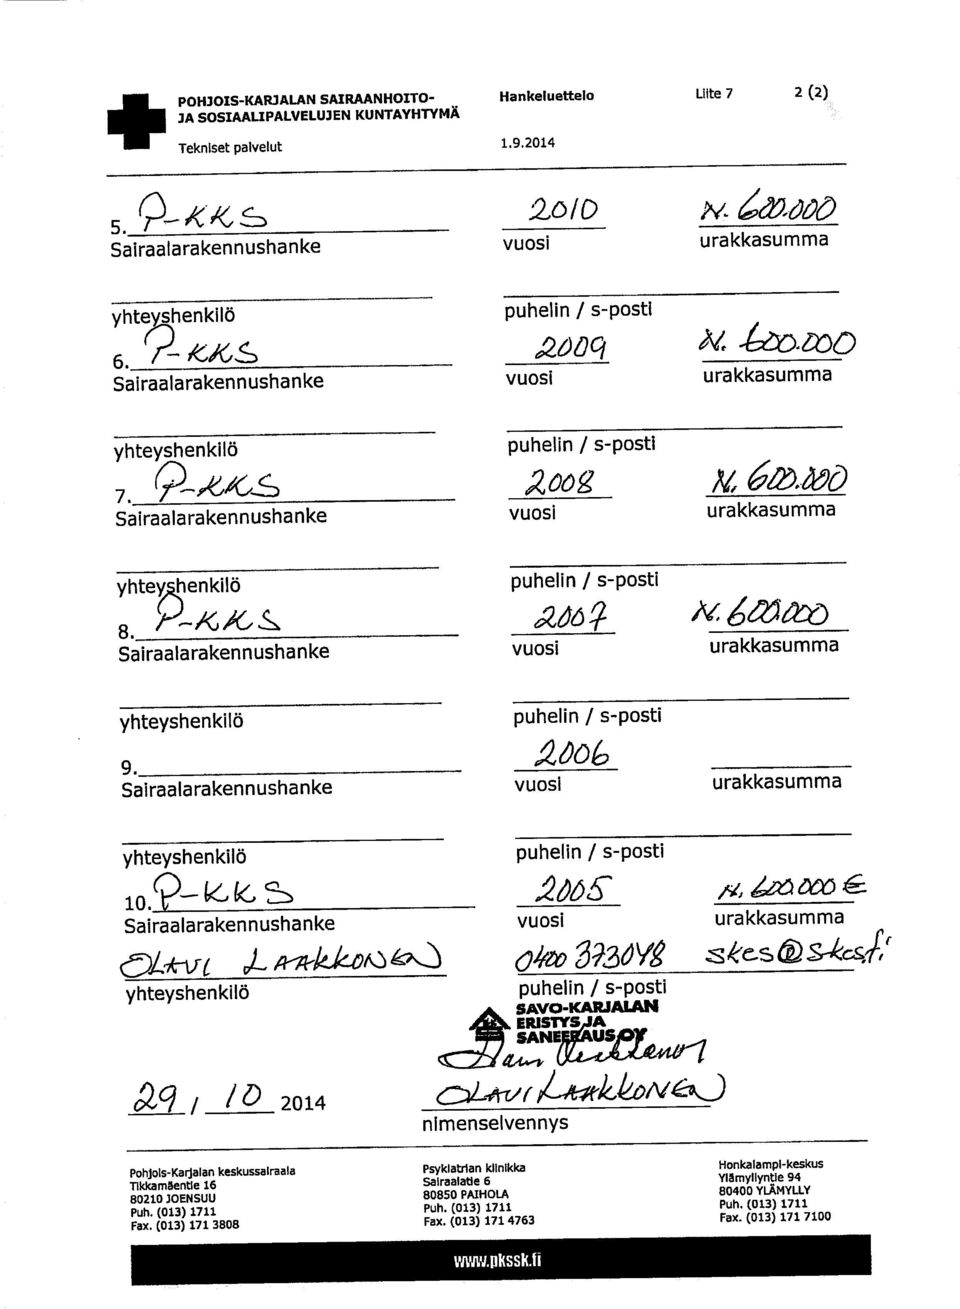 POHJOIS-KARJALAN SAIRAANHOITO- Hankeluettelo Liite 7 2 (2)
JA SOSIAALIPALVELUJEN KUNTAYHTYMÄ
Tekniset palvelut 1.9.2014
5. P-KKS 2010 N. 600.000
Sairaalarakennushanke vuosi urakkasumma
yhteyshenkilö puhelin / s-posti
6. P-KKS 2009 N. 600.000
Sairaalarakennushanke vuosi urakkasumma
yhteyshenkilö puhelin / s-posti
7. P-KKS 2008 N. 600.000
Sairaalarakennushanke vuosi urakkasumma
yhteyshenkilö puhelin / s-posti
8. P-KKS 2007 N. 600.000
Sairaalarakennushanke vuosi urakkasumma
yhteyshenkilö puhelin / s-posti
9. 2006
Sairaalarakennushanke vuosi urakkasumma
yhteyshenkilö puhelin / s-posti
10. P-KKS 2005 N. 600.000 €
Sairaalarakennushanke vuosi urakkasumma
OLAVI LAAKKONEN 0400 373048 skes@skes.fi
yhteyshenkilö puhelin / s-posti
SAVO-KARJALAN
ERISTYS JA
SANEERAUS OY
29 / 10 2014 OLAVI LAAKKONEN
nimenselvennys
Pohjois-Karjalan keskussairaala Psykiatrian klinikka Honkalampi-keskus
Tikkamäentie 16 Sairaalatie 6 Ylämyllyntie 94
80210 JOENSUU 80850 PAIHOLA 80400 YLÄMYLLY
Puh. (013) 1711 Puh. (013) 1711 Puh. (013) 1711
Fax. (013) 171 3808 Fax. (013) 171 4763 Fax. (013) 171 7100
www.pkssk.fi